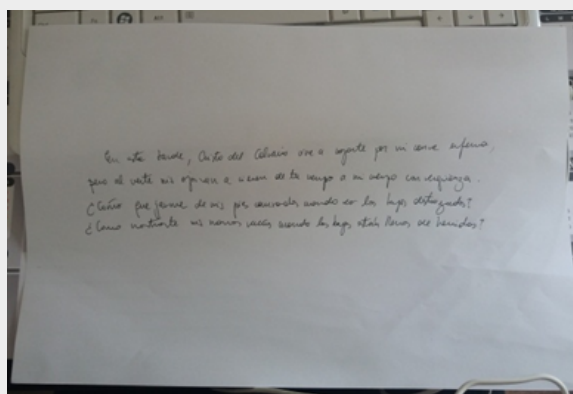 En esta tarde, Cristo del Calvario vine a rogarte por mi carne enferma,
pero al verte mis ojos van a de tu cuerpo a mi cuerpo con vergüenza.
¿Cómo quejarme de mis pies cansados cuando veo los tuyos destrozados?
¿Cómo mostrarte mis manos vacías cuando las tuyas están llenas de heridas?